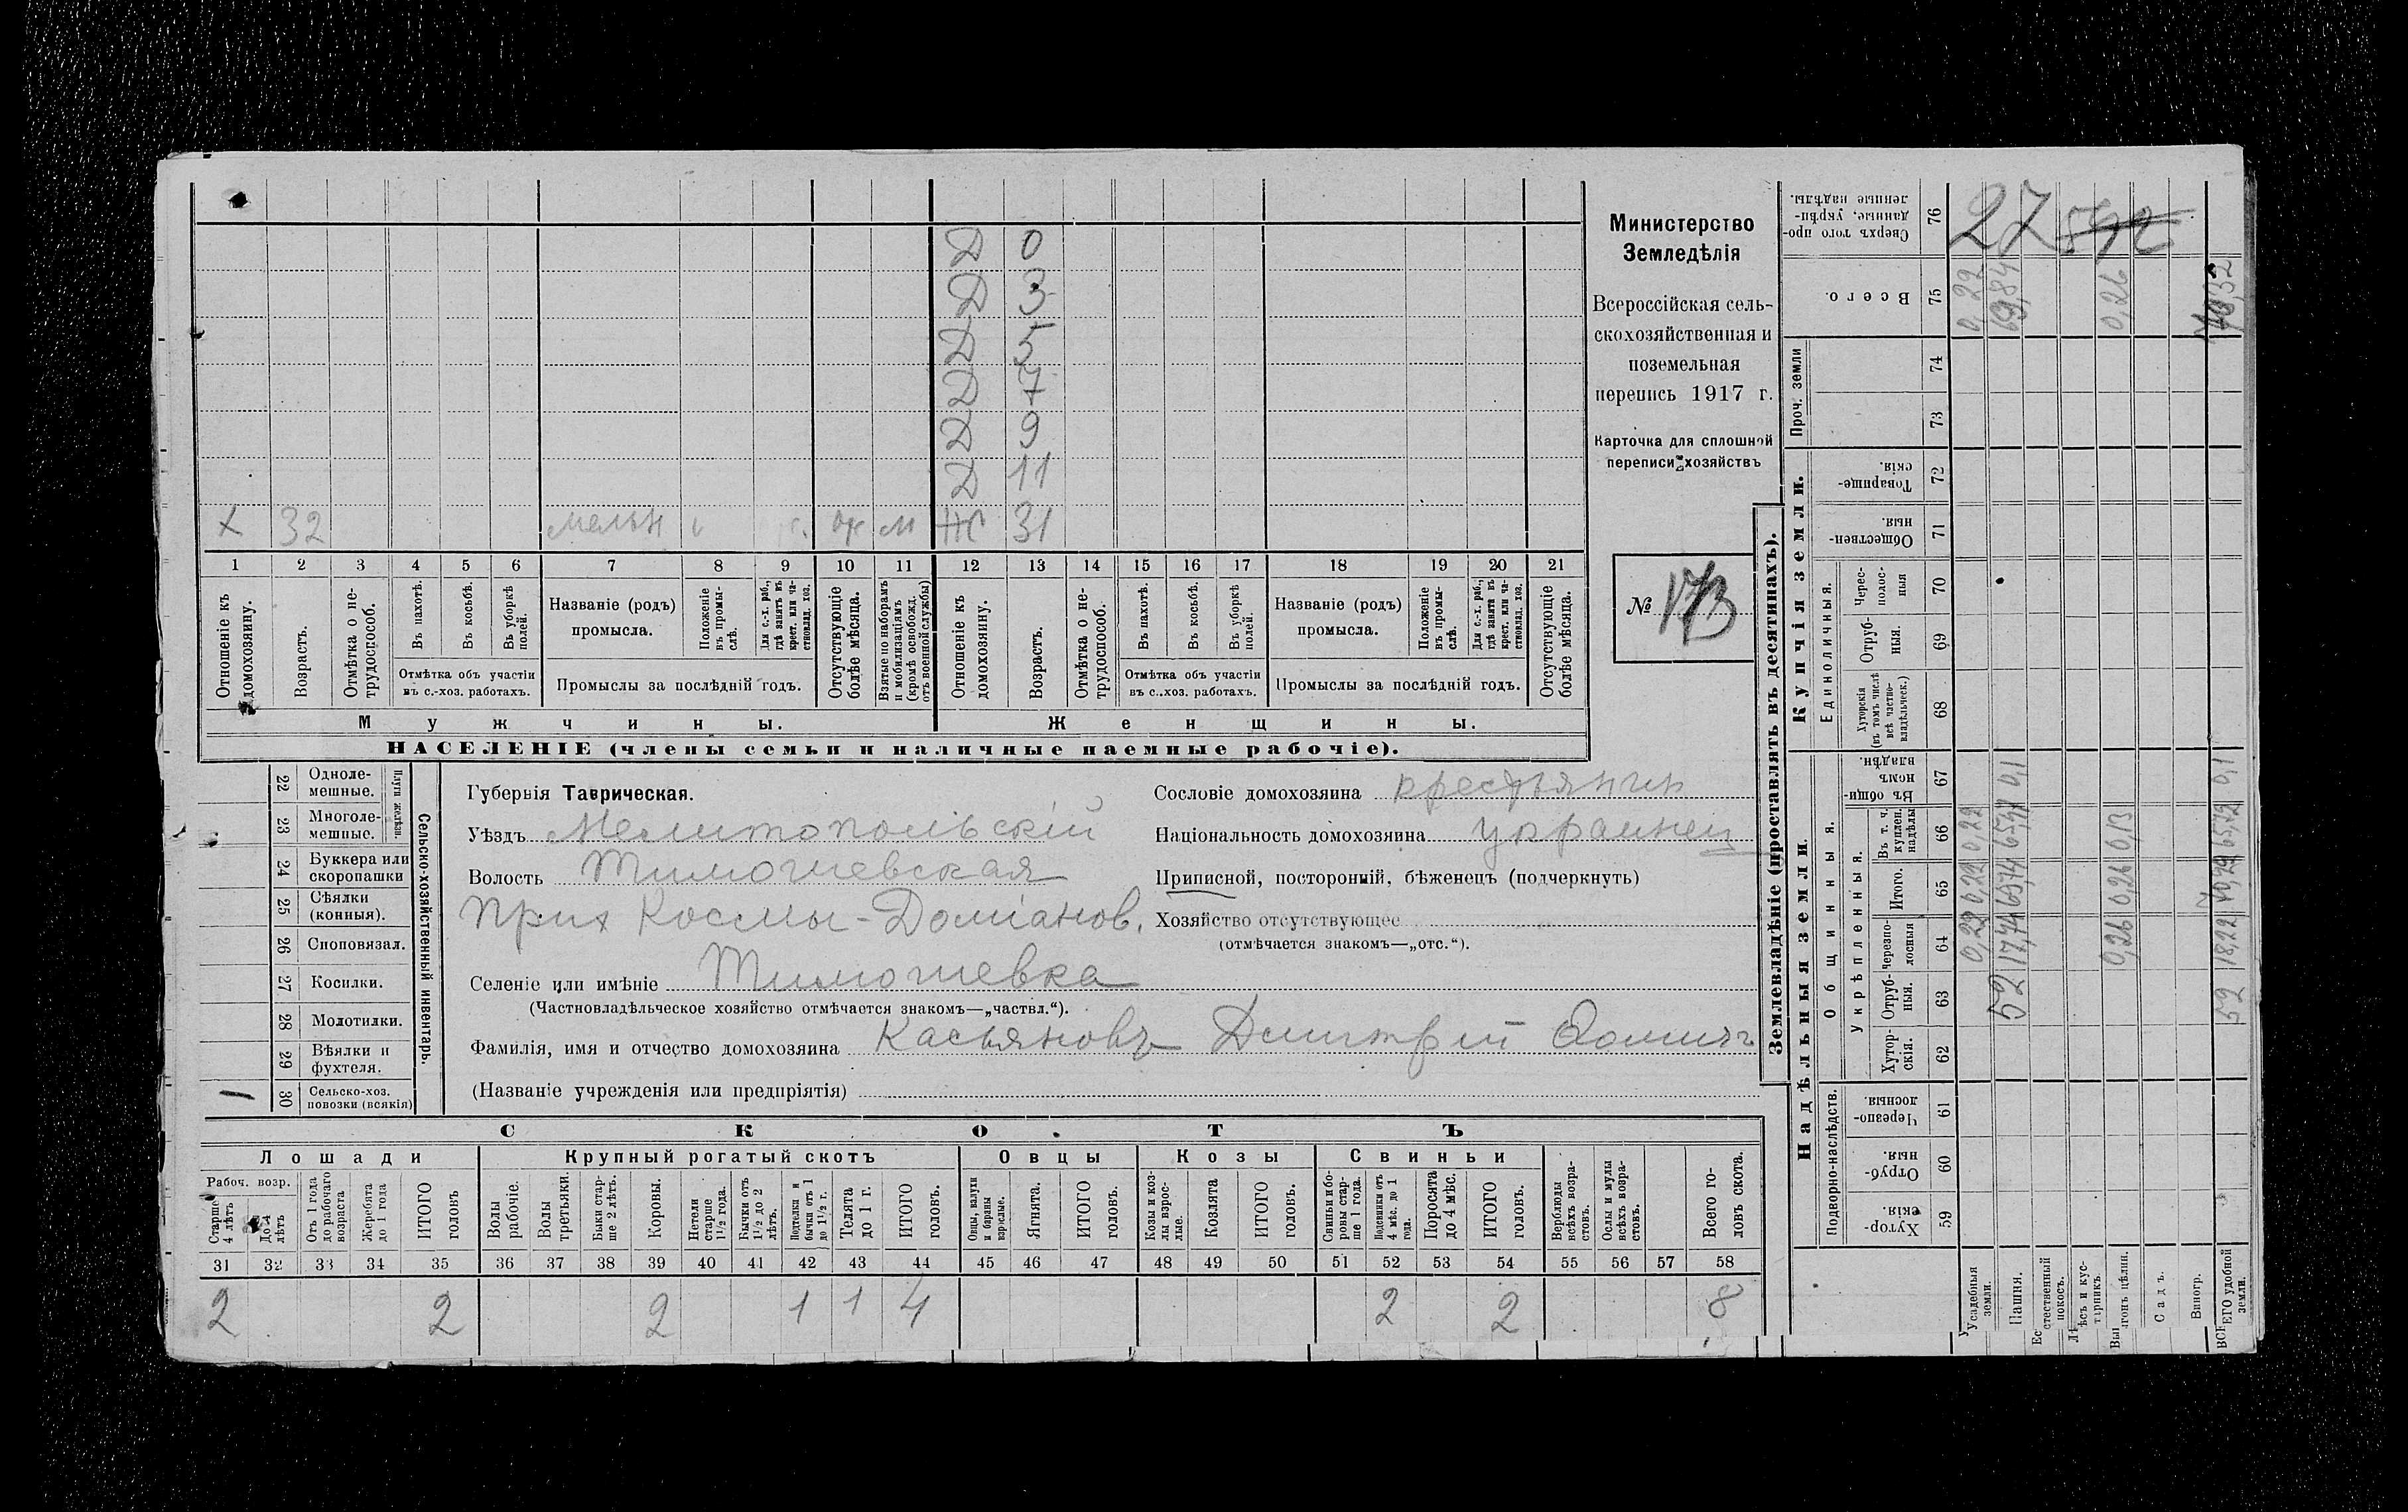 Министерство
Земледѣлія
Всероссійская сель-
скохозяйственная и
поземельная
перепись 1917 г.
Карточка для сплошной
переписи хозяйствъ
№ 173
Д 0
Д 3
Д 5
Д 7
Д 9
Д 11
х 32 мельн г. от м Ж 31
1 2 3 4 5 6 7 8 9 10 11 12 13 14 15 16 17 18 19 20 21
Отношеніе къ домохозяину.
Возрастъ.
Отмѣтка о не-трудоспособ.
Въ пахотѣ.
Въ косьбѣ.
Въ уборкѣ полей.
Отмѣтка объ участіи
въ с.-хоз. работахъ.
Названіе (родъ)
промысла.
Положеніе въ промы-слѣ.
Для с.-х. раб., гдѣ занятъ въ крест. или ча-стновлад. хоз.
Промыслы за послѣдній годъ.
Отсутствующіе болѣе мѣсяца.
Взятые по наборамъ и мобилизаціямъ (кромѣ освобожд. отъ военной службы)
Отношеніе къ домохозяину.
Возрастъ.
Отмѣтка о не-трудоспособ.
Въ пахотѣ.
Въ косьбѣ.
Въ уборкѣ полей.
Отмѣтка объ участіи
въ с.-хоз. работахъ.
Названіе (родъ)
промысла.
Положеніе въ промы-слѣ.
Для с.-х. раб., гдѣ занята въ крест. или ча-стновлад. хоз.
Промыслы за послѣдній годъ.
Отсутствующіе болѣе мѣсяца.
Мужчины. Женщины.
НАСЕЛЕНІЕ (члены семьи и наличные наемные рабочіе).
Сельско-хозяйственный инвентарь.
Плуги желѣзн.
22 Одноле-мешные.
23 Многоле-мешные.
24 Буккера или скоропашки
25 Сѣялки (конныя).
26 Сноповязал.
27 Косилки.
28 Молотилки.
29 Вѣялки и фухтеля.
1 30 Сельско-хоз. повозки (всякія)
Губернія Таврическая.
Уѣздъ Мелитопольскій
Волость Тимошевская
Прих Космы-Доміанов.
Селеніе или имѣніе Тимошевка
(Частновладѣльческое хозяйство отмѣчается знакомъ—„частвл.“).
Фамилія, имя и отчество домохозяина Касьяновъ Дмитрій Фомичъ
(Названіе учрежденія или предпріятія)
Сословіе домохозяина крестьянин
Національность домохозяина украинец
Приписной, посторонній, бѣженецъ (подчеркнуть)
Хозяйство отсутствующее
(отмѣчается знакомъ—„отс.“).
СКОТЪ
Лошади Крупный рогатый скотъ Овцы Козы Свиньи
Рабоч. возр.
Старше 4 лѣтъ
До 4 лѣтъ
Отъ 1 года до рабочаго возраста
Жеребята до 1 года
ИТОГО головъ
Волы рабочіе.
Волы третьяки.
Быки стар-ше 2 лѣтъ.
Коровы.
Нетели старше 1½ года.
Бычки отъ 1½ до 2 лѣтъ.
Подтелки и бычки отъ 1 до 1½ г.
Телята до 1 г.
ИТОГО головъ.
Овцы, валухи и бараны взрослые.
Ягнята.
ИТОГО головъ.
Козы и коз-лы взрос-лые.
Козлята
ИТОГО головъ.
Свиньи и бо-ровы стар-ше 1 года.
Подсвинки отъ 4 мѣс. до 1 года.
Поросята до 4 мѣс.
ИТОГО головъ.
Верблюды всѣхъ возра-стовъ.
Ослы и мулы всѣхъ возра-стовъ.
Всего го-ловъ скота.
31 32 33 34 35 36 37 38 39 40 41 42 43 44 45 46 47 48 49 50 51 52 53 54 55 56 57 58
2 2 2 1 1 4 2 2 8
Землевладѣніе (проставлять въ десятинахъ).
Надѣльныя земли.
Купчія земли.
Проч. земли
Подворно-наслѣдств.
Общинныя.
Укрѣпленныя.
Единоличныя.
Хутор-скія. 59
Отруб-ныя. 60
Черезпо-лосныя 61
Хутор-скія. 62
Отруб-ныя. 63
Черезпо-лосныя 64
Итого. 65
Въ т. ч. куплен. надѣлы 66
Въ общи-номъ владѣн. 67
Хуторскія (въ томъ числѣ всѣ частно-владѣльческ.) 68
Отруб-ныя. 69
Черес-полос-ныя 70
Обществен-ныя. 71
Товарище-скія. 72
73
74
Всего. 75
Сверхъ того про-данные, укрѣп-ленные надѣлы. 76
Усадебныя земли. 0,22 0,22 0,22 0,22
Пашня. 52 17,74 69,74 0,1 69,84
Естественный покосъ.
Лѣсъ и кус-тарникъ.
Выгонъ цѣлин. 0,26 0,26 0,13 0,26
Садъ.
Виногр.
ВСЕГО удобной земли. 52 18,22 0,1 70,32
27